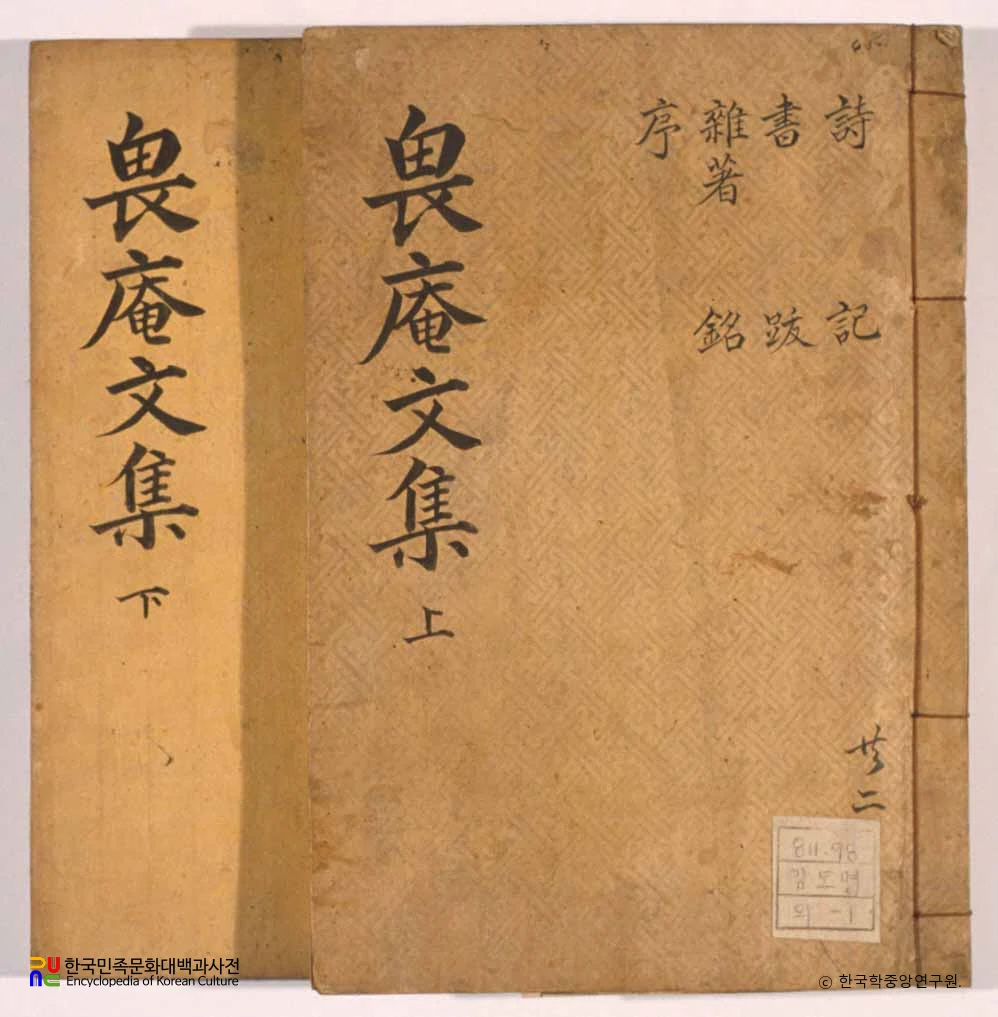 畏庵文集 上
詩
書
雜著
序
記
跋
銘
共二
畏庵文集 下
811.98
김도명
외-1
한국민족문화대백과사전
Encyclopedia of Korean Culture
© 한국학중앙연구원.